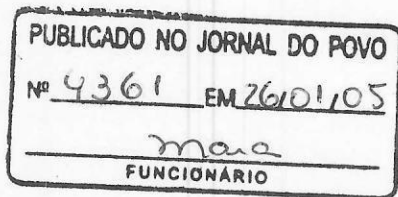 PUBLICADO NO JORNAL DO POVO
Nº 4361 EM 26/01/05
Maia
FUNCIONÁRIO